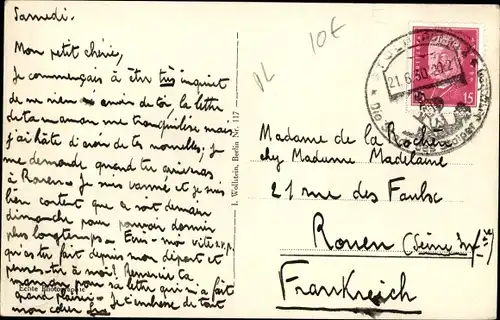 Samedi.
Mon petit chérie,
Je commençais à être très inquiet
de ne rien avoir de toi la lettre
de ta maman me tranquilise mais
j'ai hâte d'avoir de tes nouvelles, je
me demande quand tu arriveras
à Rouen. Je suis vanné et je suis
bien content que ce soit demain
dimanche pour pouvoir dormir
plus longtemps. Ecris-moi vite s.v.p.
qu'as tu fait depuis mon départ et
penses-tu à moi? Remercie ta
maman pour sa lettre qui m'a fait
grand plaisir. Je t'embrasse de tout
mon cœur
Echte Photographie
I. Wollstein, Berlin Nr. 117
DL
10€
21.6.30
15
Madame de la Rochère
chez Madame Madelaine
21 rue des Faulx
Rouen
(Seine Infre)
Frankreich